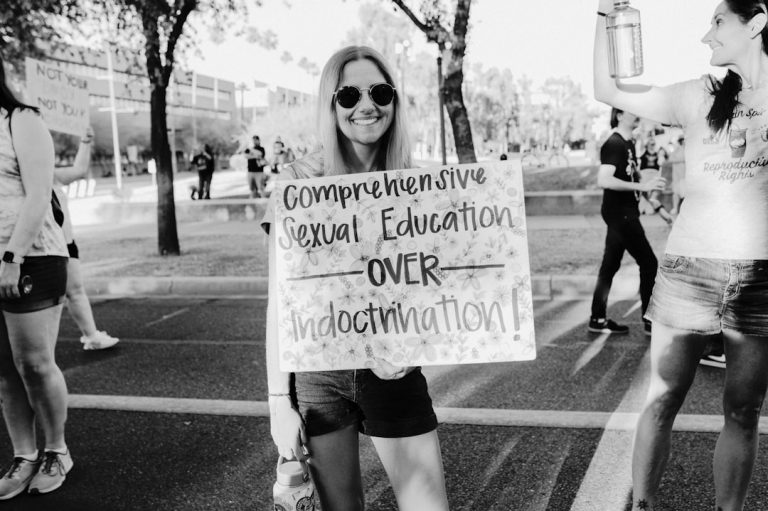 NOT YOUR
NOT YOU
Comprehensive
Sexual Education
OVER
Indoctrination!
Reproductive
Rights